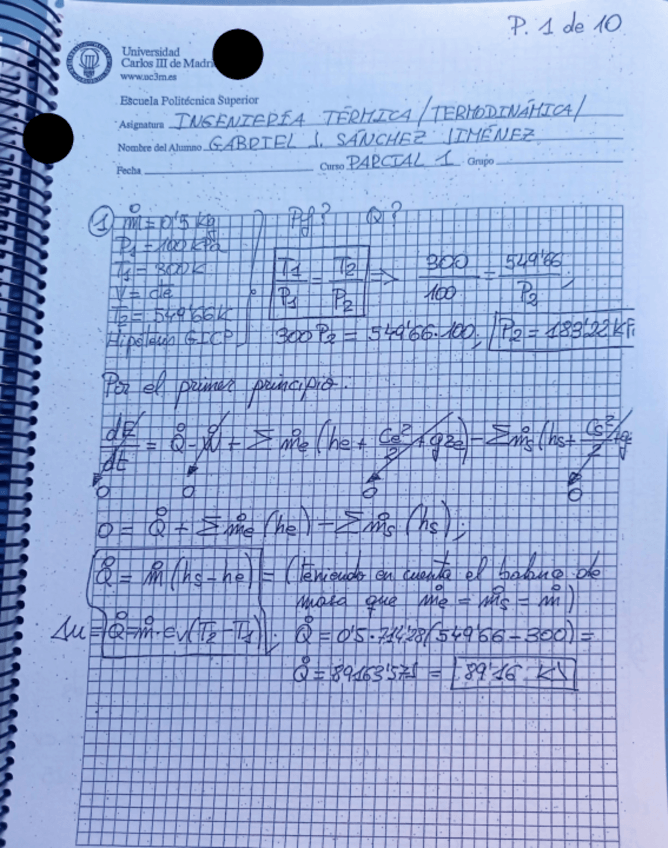 P. 1 de 10
Universidad
Carlos III de Madri
www.uc3m.es
Escuela Politécnica Superior
Asignatura INGENIERÍA TÉRMICA/TERMODINÁMICA/
Nombre del Alumno GABRIEL J. SÁNCHEZ JIMÉNEZ
Fecha Curso PARCIAL 1 Grupo
① ṁ = 0'5 kg Pf? Q?
P₁ = 100 kPa
T₁ = 300 K T₁/P₁ = T₂/P₂ => 300/100 = 549'66/P₂;
V = cte
T₂ = 549'66 K
Hipótesis GICP 300 P₂ = 549'66 · 100; P₂ = 183'22 kP
Por el primer principio.
dE/dt = Q̇ - Ẇ + Σ ṁe (he + Ce²/2 + gze) - Σ ṁs (hs + Cs²/2 + g
0 0 0 0
0 = Q̇ + Σ ṁe (he) - Σ ṁs (hs);
Q̇ = ṁ (hs - he) = (Teniendo en cuenta el balance de
masa que ṁe = ṁs = ṁ)
Δu = Q̇ = ṁ · cv (T₂ - T₁); Q̇ = 0'5 · 714'28 (549'66 - 300) =
Q̇ = 89163'571 = 89'16